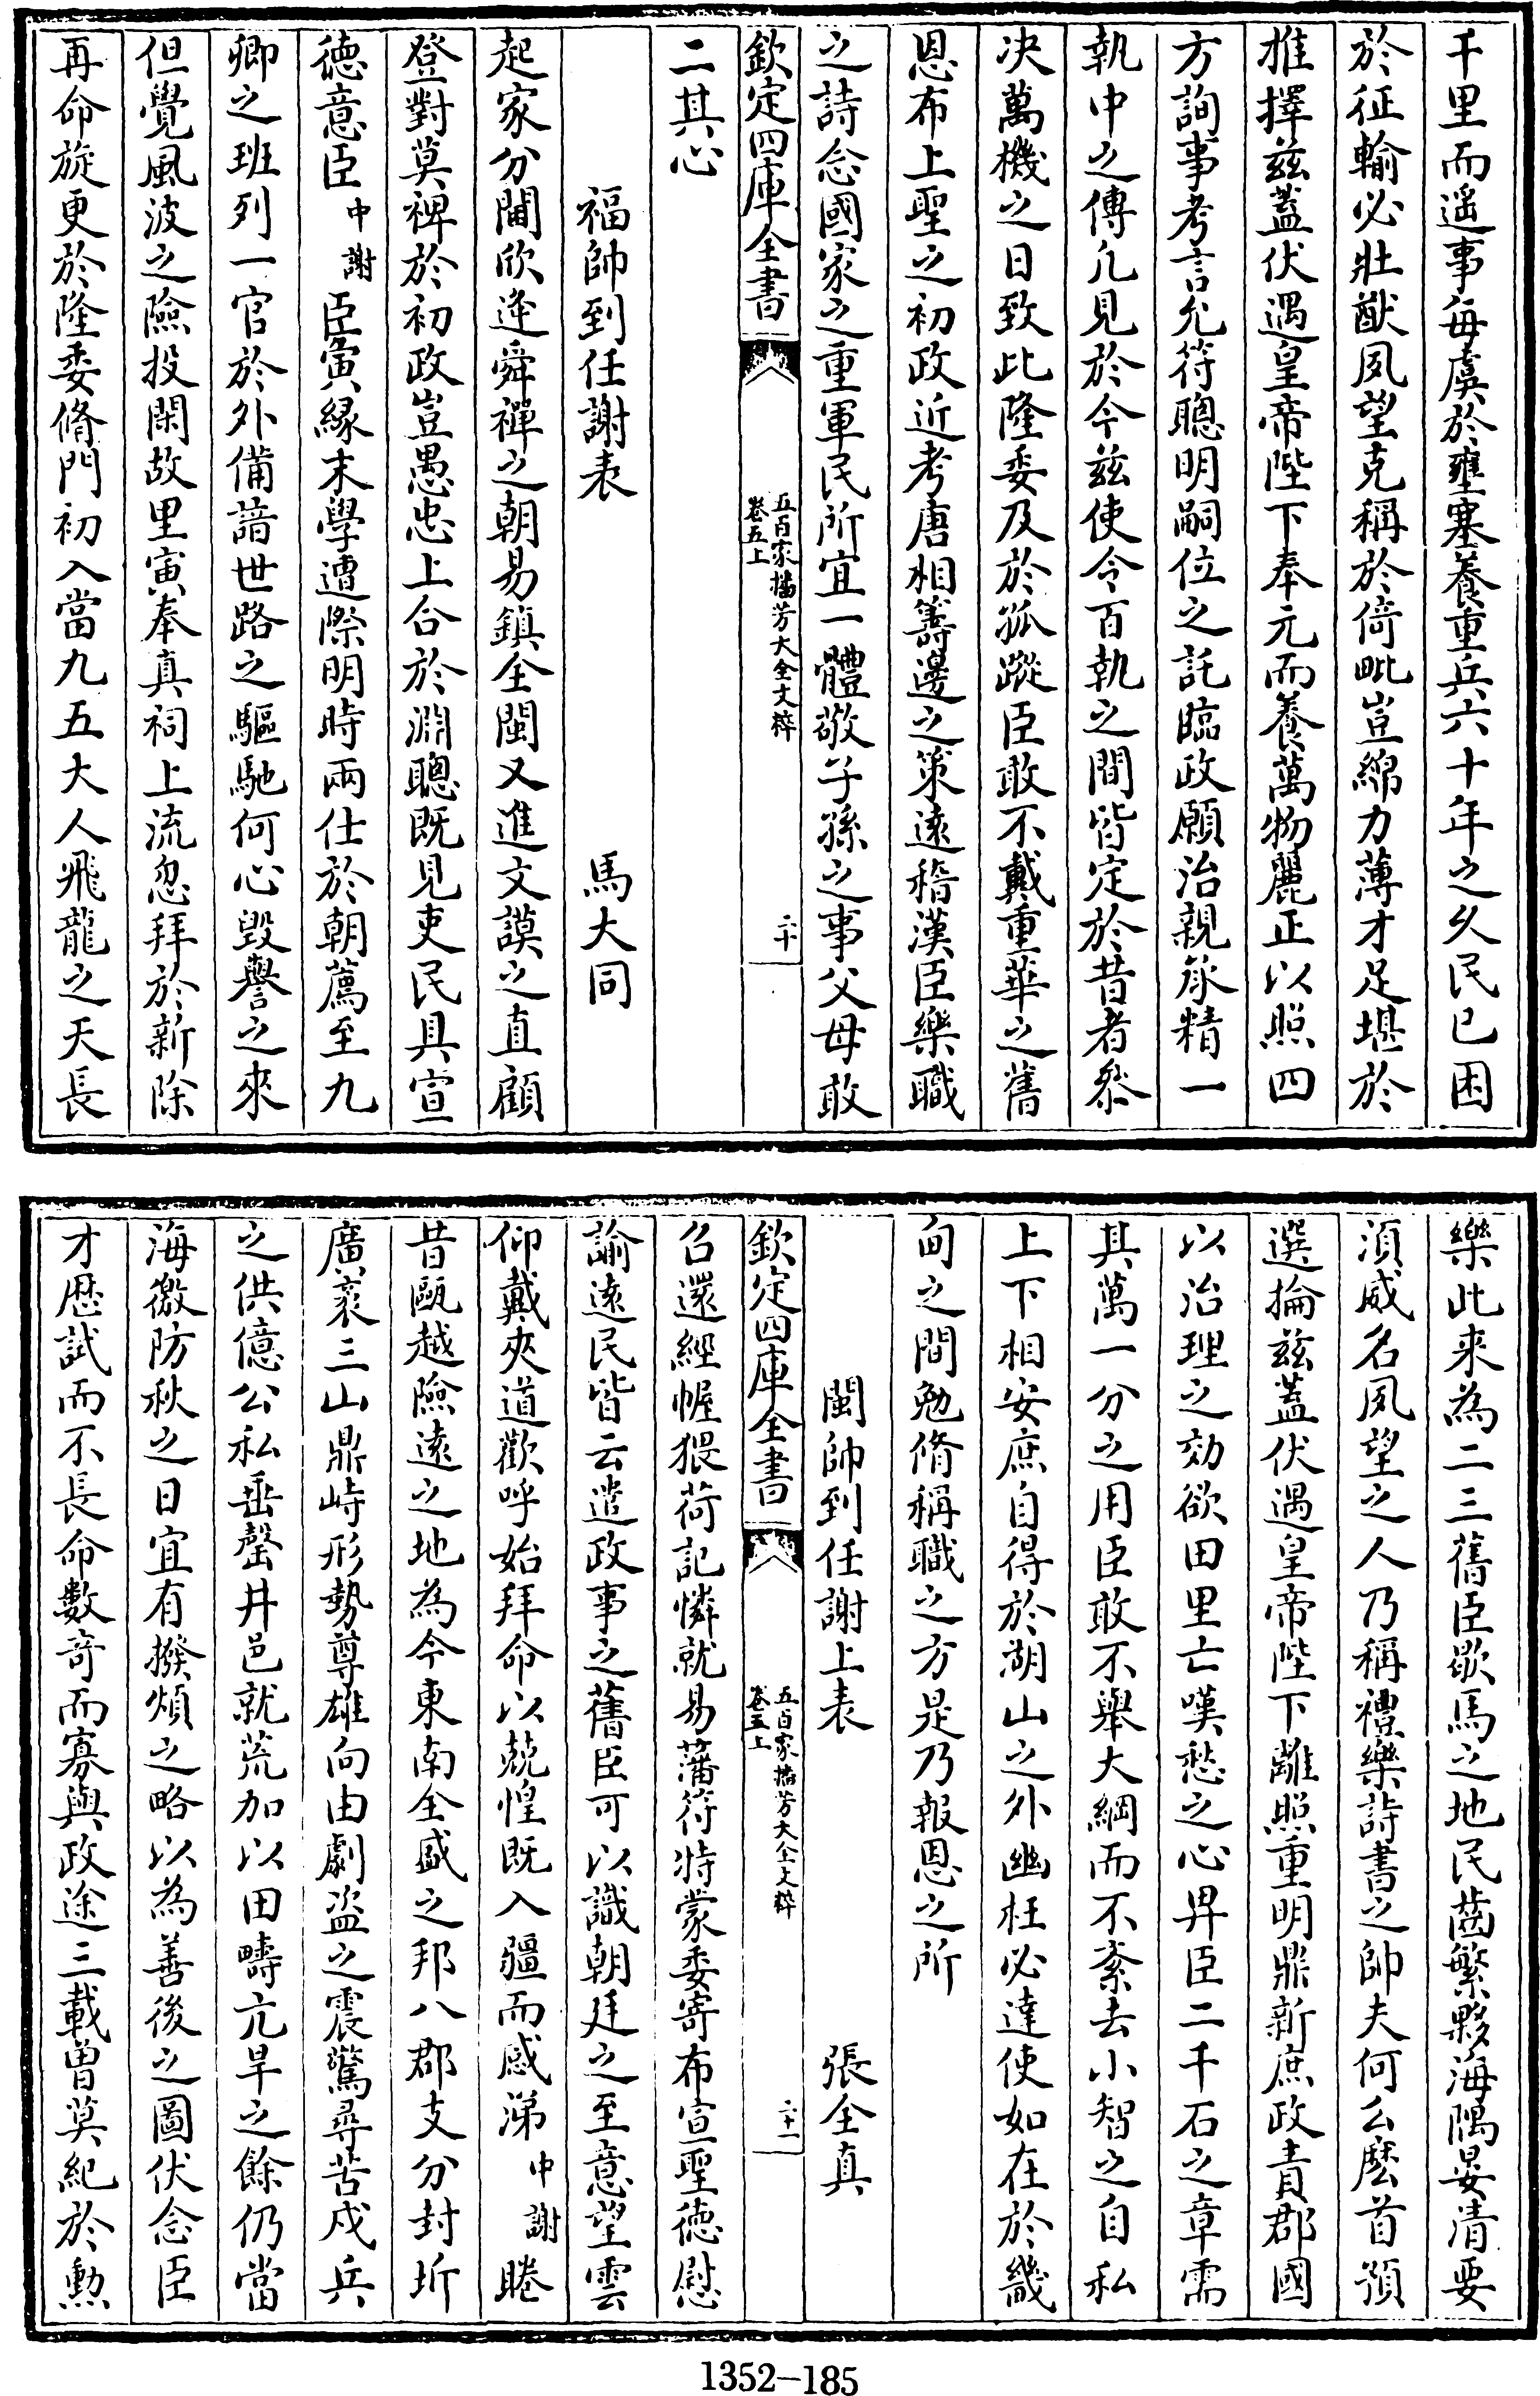 千里而遥事每虞於壅塞養重兵六十年之久民已困
於征輸必壯猷夙望克稱於倚毗豈綿力薄才足堪於
推擇兹蓋伏遇皇帝陛下奉元而養萬物麗正以照四
方詢事考言允符聰明嗣位之託臨政願治親承精一
執中之傳凡見於今兹使令百執之間皆定於昔者叅
决萬機之日致此隆委及於孤蹤臣敢不戴重華之舊
恩布上聖之初政近考唐相籌邊之策逺稽漢臣樂職
之詩念國家之重軍民所宜一體敬子孫之事父母敢
欽定四庫全書
五百家播芳大全文粹
卷五上
二十
二其心
福帥到任謝表 馬大同
起家分閫欣逢舜禪之朝易鎮全閩又進文謨之直顧
登對莫裨於初政豈愚忠上合於淵聰既見吏民具宣
德意臣中謝臣寅緣末學遭際明時兩仕於朝薦至九
卿之班列一官於外備諳世路之驅馳何心毀譽之來
但覺風波之險投閑故里寅奉真祠上流忽拜於新除
再命旋更於隆委脩門初入當九五大人飛龍之天長
樂此来為二三舊臣歇馬之地民齒繁夥海隅晏清要
須威名夙望之人乃稱禮樂詩書之帥夫何么麽首預
選掄兹蓋伏遇皇帝陛下離照重明鼎新庶政責郡國
以治理之効欲田里亡嘆愁之心畀臣二千石之章需
其萬一分之用臣敢不舉大綱而不紊去小智之自私
上下相安庶自得於湖山之外幽枉必達使如在於畿
甸之間勉脩稱職之方是乃報恩之所
閩帥到任謝上表 張全真
欽定四庫全書
五百家播芳大全文粹
卷五上
二十一
召還經幄猥荷記憐就易藩符特蒙委寄布宣聖徳慰
諭逺民皆云遣政事之舊臣可以識朝廷之至意望雲
仰戴夾道歡呼始拜命以兢惶既入疆而感涕中謝睠
昔甌越險逺之地為今東南全盛之邦八郡支分封圻
廣袤三山鼎峙形勢尊雄向由劇盜之震驚尋苦戍兵
之供億公私垂罄井邑就荒加以田疇亢旱之餘仍當
海徼防秋之日宜有撥煩之略以為善後之圖伏念臣
才歴試而不長命數奇而寡與政途三載曽莫紀於勲
1352-185